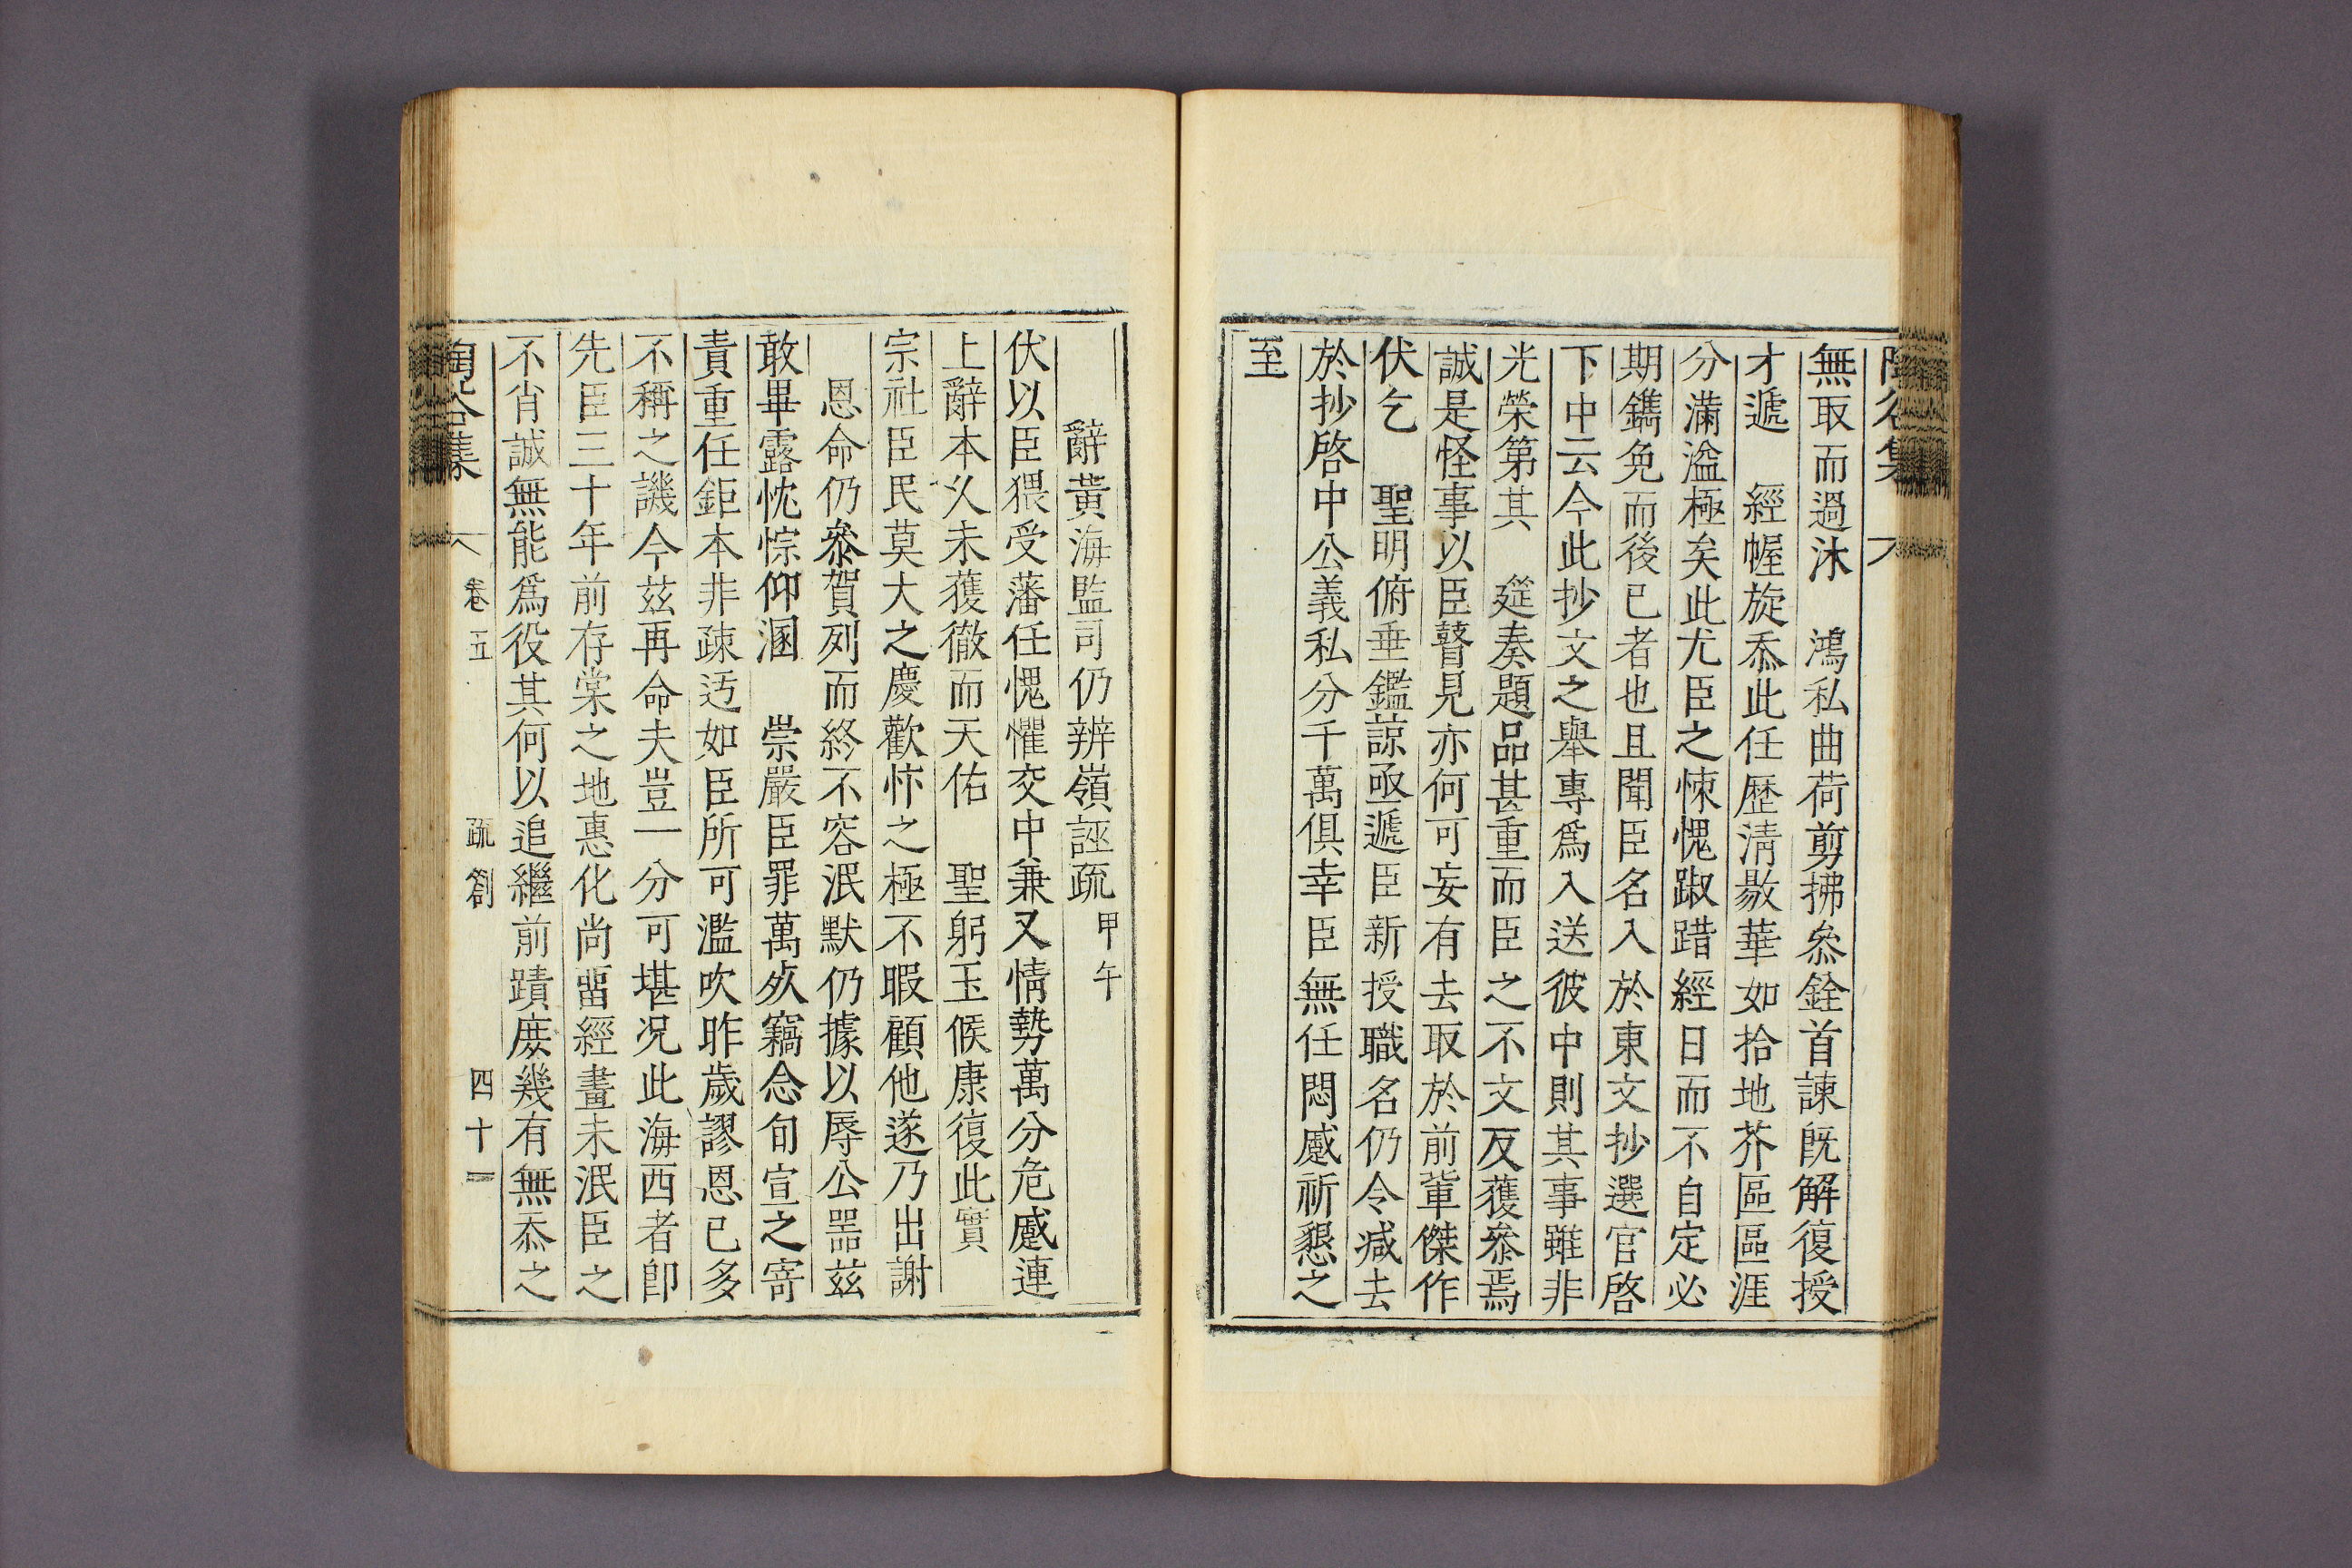 無取而過沐　鴻私曲荷剪拂叅銓首諫旣解復授
才遞　經幄旋忝此任歷淸敭華如拾地芥區區涯
分滿溢極矣此尤臣之悚愧踧踖經日而不自定必
期鐫免而後已者也且聞臣名入於東文抄選官啓
下中云今此抄文之舉專爲入送彼中則其事雖非
光榮第其　筵奏題品甚重而臣之不文反獲叅焉
誠是怪事以臣瞽見亦何可妄有去取於前軰傑作
伏乞　聖明俯垂鑑諒亟遞臣新授職名仍令减去
於抄啓中公義私分千萬俱幸臣無任悶蹙祈懇之
至
辭黃海監司仍辨嶺誣疏甲午
伏以臣猥受藩任愧懼交中兼又情勢萬分危蹙連
上辭本久未獲徹而天佑　聖躬玉候康復此實
宗社臣民莫大之慶歡忭之極不暇顧他遂乃出謝
恩命仍叅賀列而終不容泯默仍據以辱公器茲
敢畢露忱悰仰溷　崇嚴臣罪萬死竊念旬宣之寄
責重任鉅本非疎迃如臣所可濫吹昨歲謬恩已多
不稱之譏今茲再命夫豈一分可堪况此海西者卽
先臣三十年前存棠之地惠化尚留經畫未泯臣之
不肖誠無能爲役其何以追繼前蹟庶幾有無忝之
陶谷集　卷五　疏箚　四十二